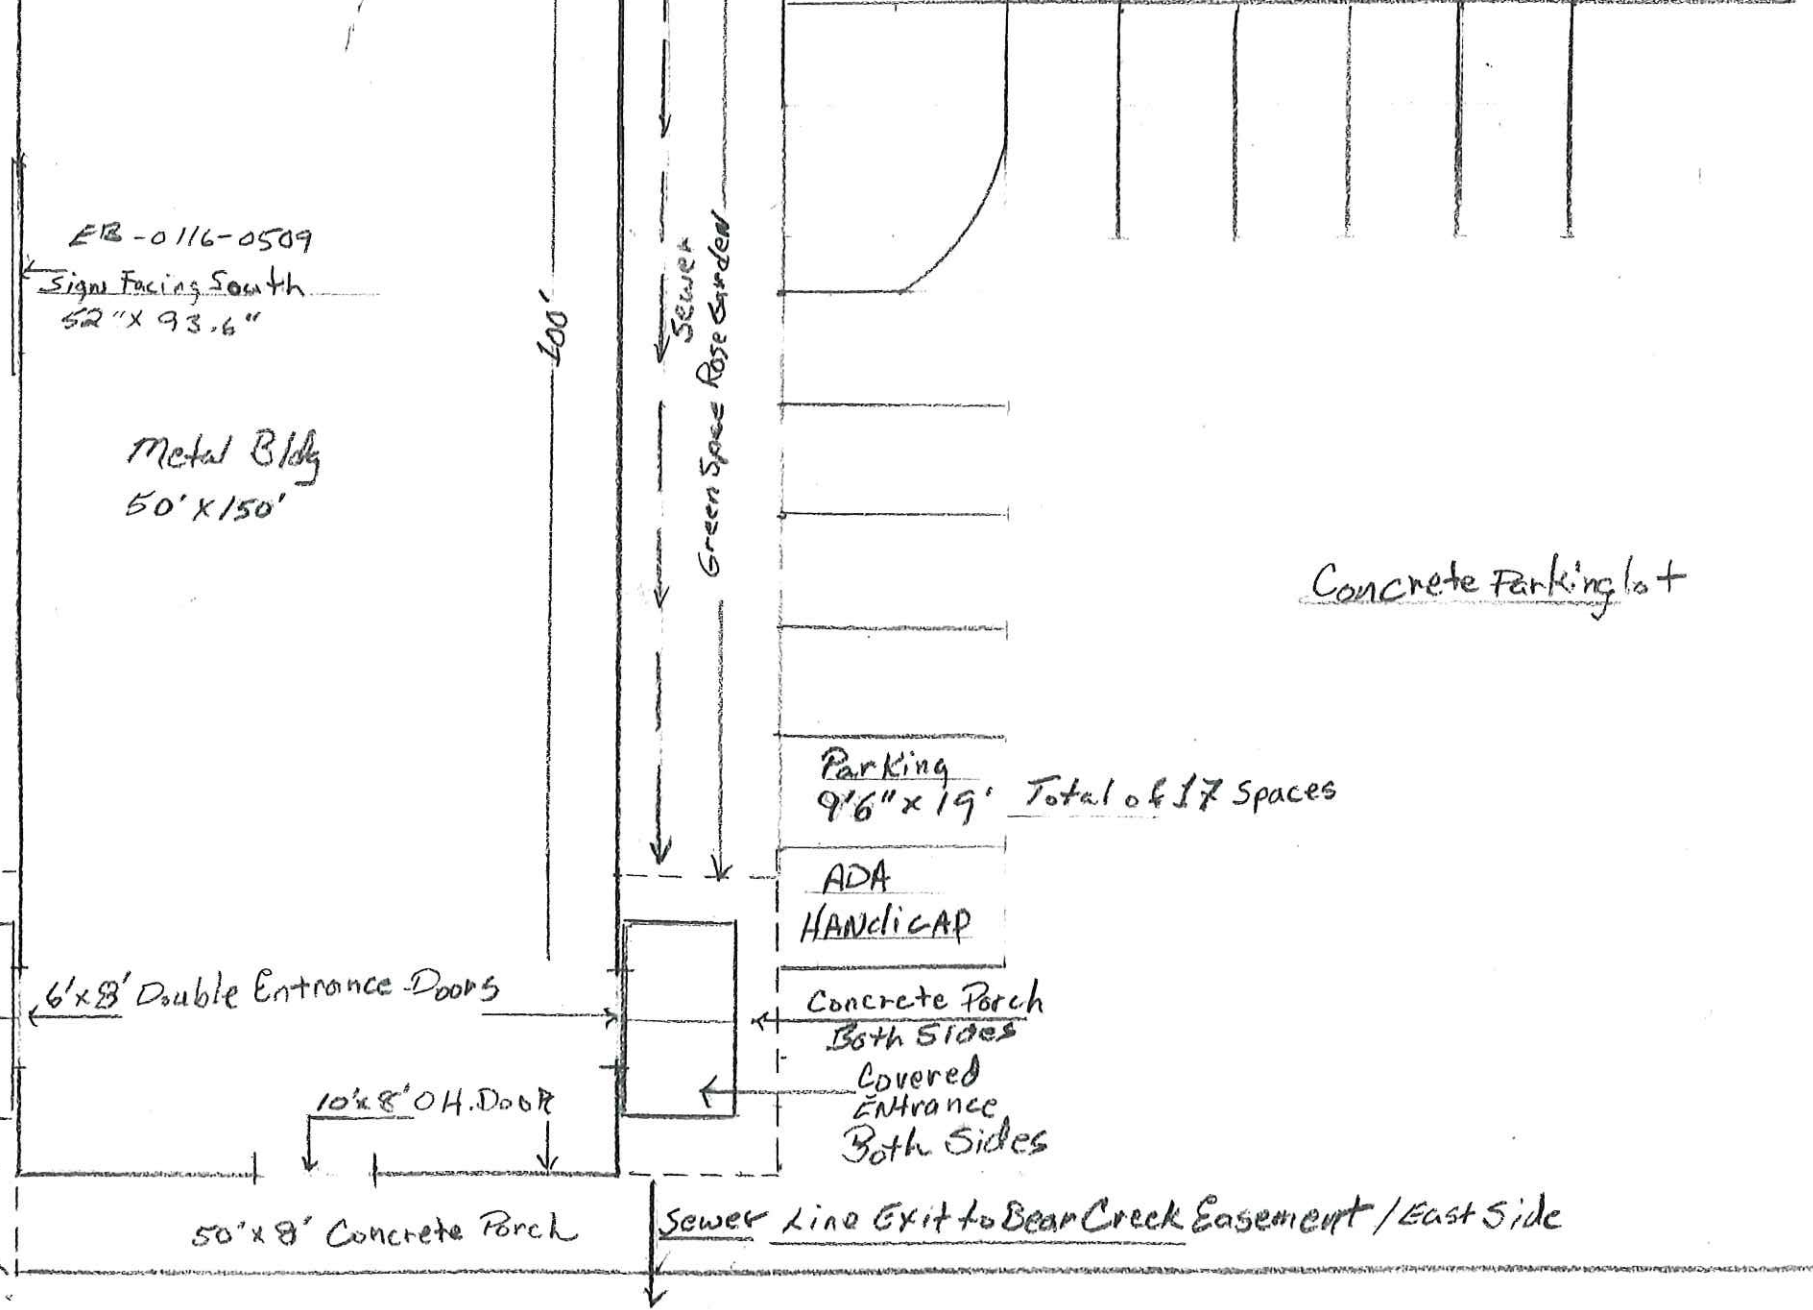 EB-0116-0509
Sign Facing South
52"X 93.6"
Metal Bldg
50'X150'
100'
Sewer
Green Space Rose Garden
Concrete Parking lot
Parking
9'6"x19'
Total of 17 Spaces
ADA
HANdiCAP
6'x8' Double Entrance Doors
Concrete Porch
Both Sides
Covered
Entrance
Both Sides
10'x8' OH.Door
50'x8' Concrete Porch
Sewer Line Exit to Bear Creek Easement/East Side